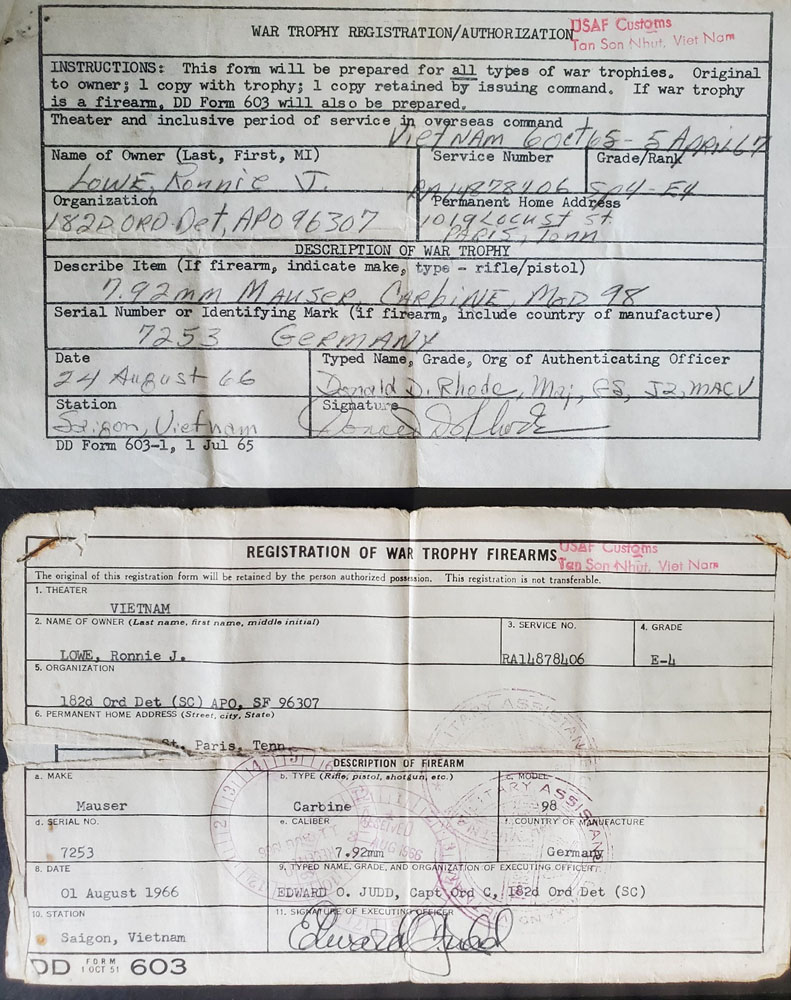 WAR TROPHY REGISTRATION/AUTHORIZATION
USAF Customs
Tan Son Nhut, Viet Nam
INSTRUCTIONS: This form will be prepared for all types of war trophies. Original
to owner; 1 copy with trophy; 1 copy retained by issuing command. If war trophy
is a firearm, DD Form 603 will also be prepared.
Theater and inclusive period of service in overseas command
VietNAM 6 Oct 65 - 5 April 67
Name of Owner (Last, First, MI)
Service Number
Grade/Rank
LOWE, Ronnie J.
RA14878406
SP4-E4
Organization
Permanent Home Address
182D ORD. Det, APO 96307
1019 Locust St.
PARIS, Tenn
DESCRIPTION OF WAR TROPHY
Describe Item (If firearm, indicate make, type - rifle/pistol)
7.92mm MAUSER, CARbiNE, MOD 98
Serial Number or Identifying Mark (if firearm, include country of manufacture)
7253 GERMANY
Date
Typed Name, Grade, Org of Authenticating Officer
24 August 66
Donald D. Rhode, Maj, GS, J2, MACV
Station
Signature
Saigon, Vietnam
Donald D Rhode
DD Form 603-1, 1 Jul 65
REGISTRATION OF WAR TROPHY FIREARMS
USAF Customs
Tan Son Nhut, Viet Nam
The original of this registration form will be retained by the person authorized possession. This registration is not transferable.
1. THEATER
VIETNAM
2. NAME OF OWNER (Last name, first name, middle initial)
3. SERVICE NO.
4. GRADE
LOWE, Ronnie J.
RA14878406
E-4
5. ORGANIZATION
182d Ord Det (SC) APO, SF 96307
6. PERMANENT HOME ADDRESS (Street, city, State)
St. Paris, Tenn.
DESCRIPTION OF FIREARM
a. MAKE
b. TYPE (Rifle, pistol, shotgun, etc.)
c. MODEL
Mauser
Carbine
98
d. SERIAL NO.
e. CALIBER
f. COUNTRY OF MANUFACTURE
7253
7.92mm
Germany
8. DATE
9. TYPED NAME, GRADE, AND ORGANIZATION OF EXECUTING OFFICER
01 August 1966
EDWARD O. JUDD, Capt Ord C, 182d Ord Det (SC)
10. STATION
11. SIGNATURE OF EXECUTING OFFICER
Saigon, Vietnam
Edward O Judd
DD FORM 1 OCT 51 603